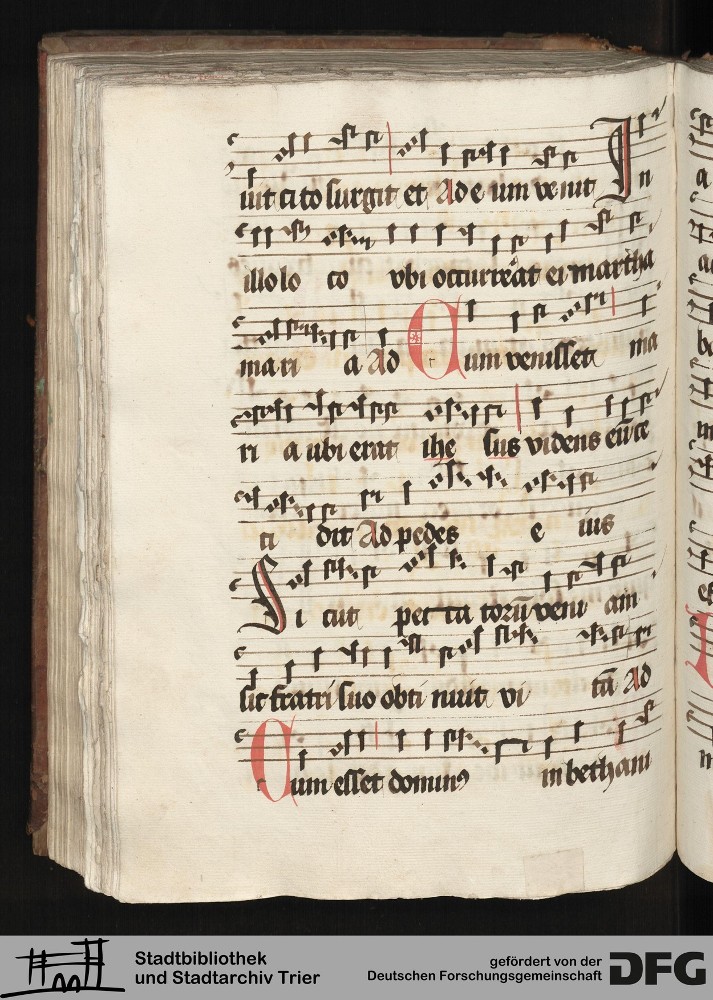 uit cito surgit et Ad eum venit In
illo lo co vbi occurreat ei martha
mari a Ad Cum venisset ma
ri a ubi erat ihe sus videns eū ce
ci dit Ad pedes e ius
Si cut peccatorū veni am
sic fratri suo obti nuit vi tā Ad
Cum esset dominꝰ in bethani
Stadtbibliothek
und Stadtarchiv Trier
gefördert von der
Deutschen Forschungsgemeinschaft
DFG